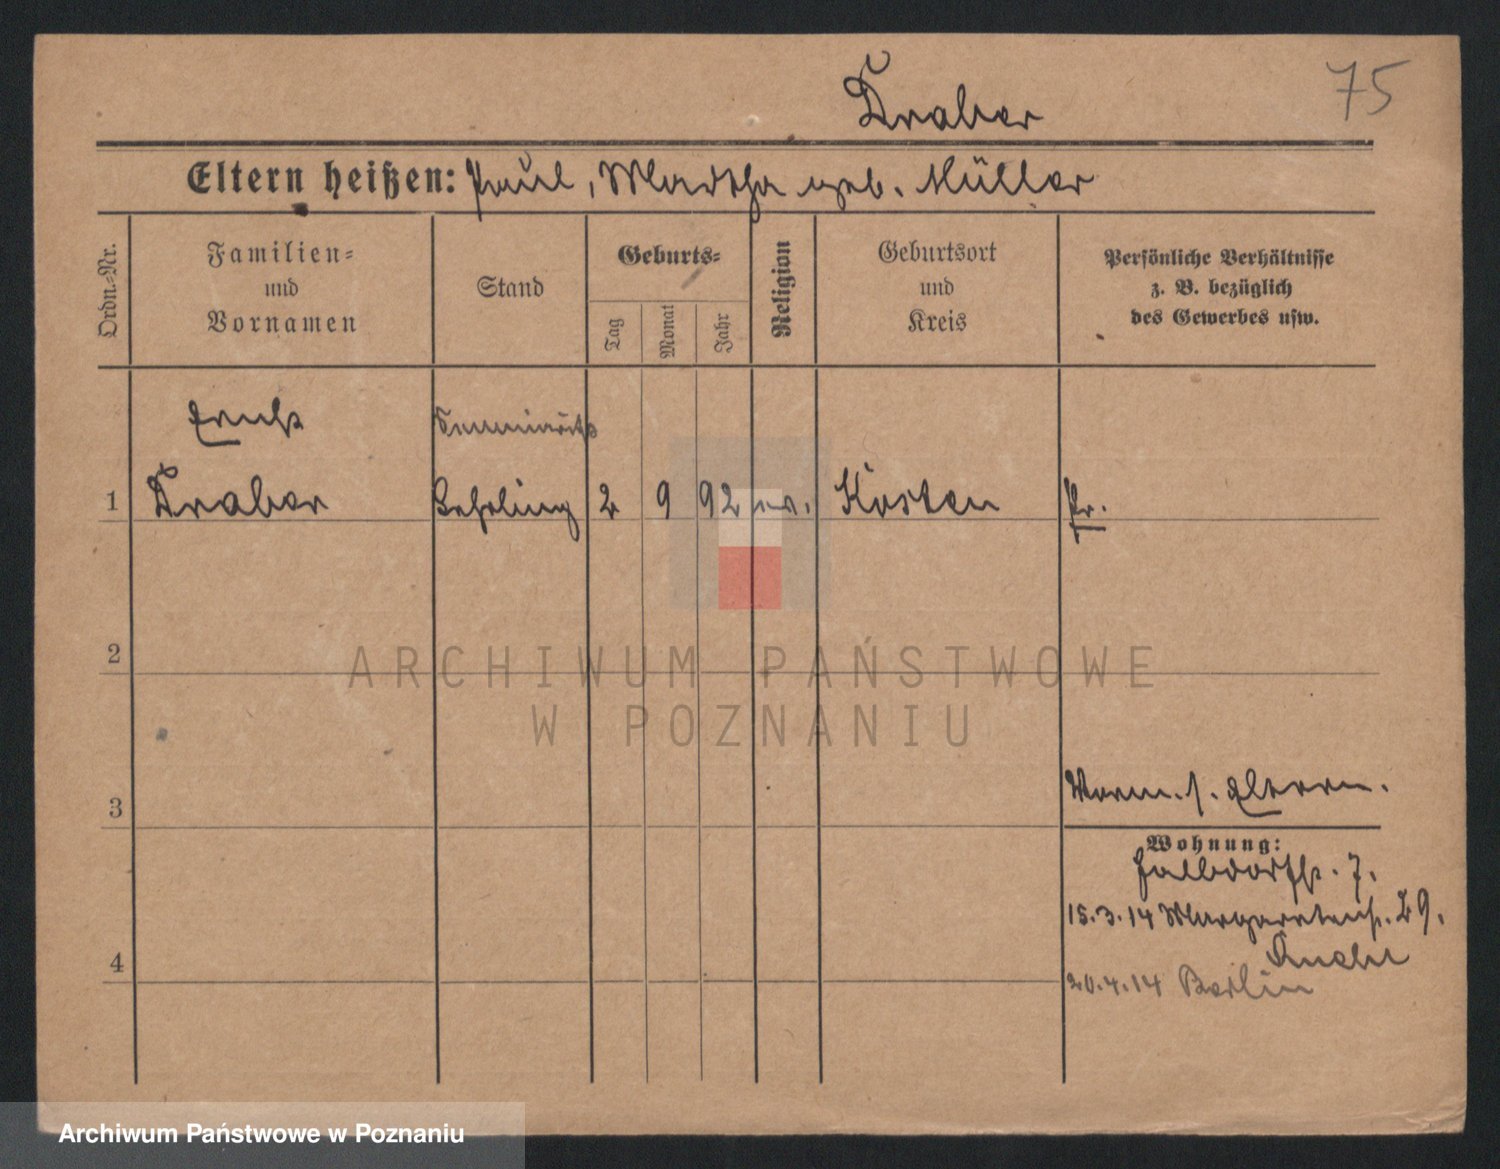 Draber
75
Eltern heißen: Paul, Martha geb. Müller
Ordn.=Nr.
Familien=
und
Vornamen
Stand
Geburts=
Tag
Monat
Jahr
Religion
Geburtsort
und
Kreis
Persönliche Verhältnisse
z. B. bezüglich
des Gewerbes usw.
Ernst
1 Draber Lehrling 2 9 92 ev. Kosten Pr.
2
ARCHIWUM PAŃSTWOWE
W POZNANIU
3 Vorm. s. Eltern.
Wohnung:
7.
15.3.14 Margaretenstr. 29.
4
20.4.14 Berlin
Archiwum Państwowe w Poznaniu